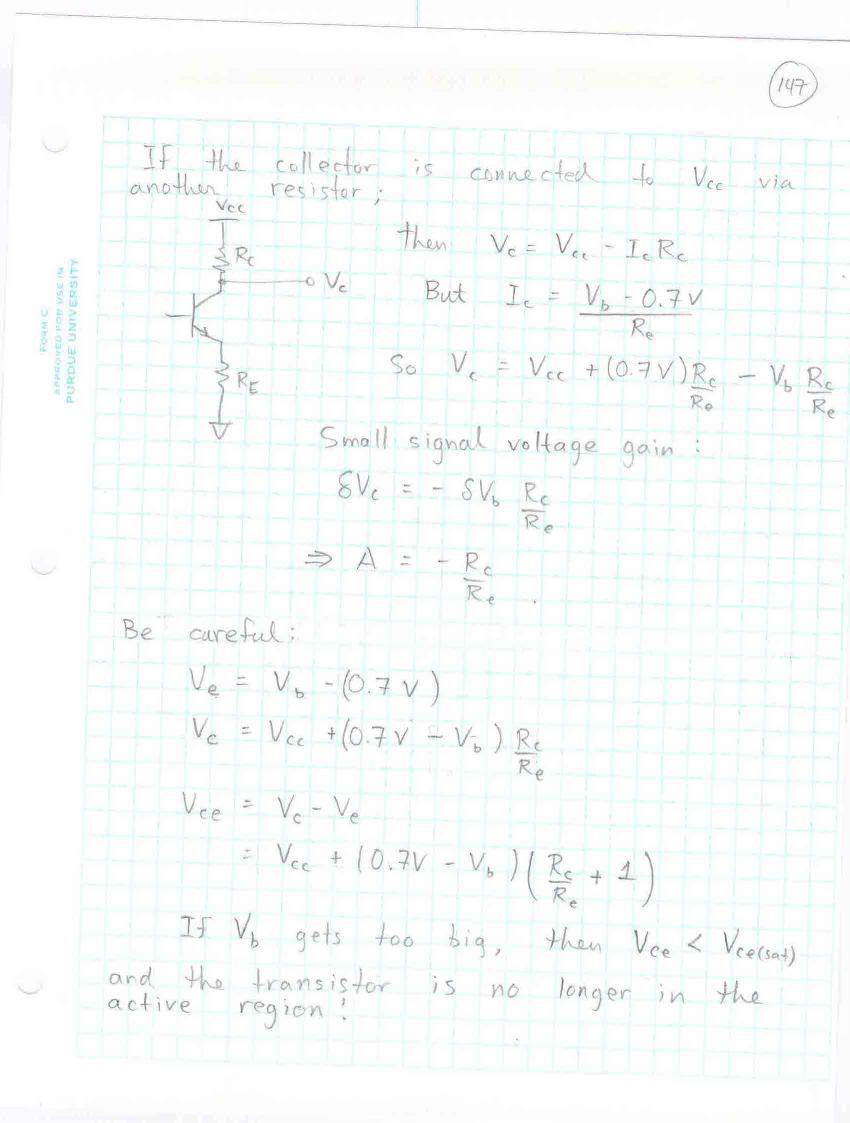 147
If the collector is connected to Vcc via
another resistor;
Vcc
Rc
Vc
RE
then Vc = Vcc - Ic Rc
But Ic = Vb - 0.7V / Re
So Vc = Vcc + (0.7V) Rc/Re - Vb Rc/Re
Small signal voltage gain:
δVc = - δVb Rc/Re
⇒ A = - Rc/Re .
Be careful:
Ve = Vb - (0.7 V)
Vc = Vcc + (0.7V - Vb) Rc/Re
Vce = Vc - Ve
= Vcc + (0.7V - Vb) (Rc/Re + 1)
If Vb gets too big, then Vce < Vce(sat)
and the transistor is no longer in the
active region!
FORM C
APPROVED FOR USE IN
PURDUE UNIVERSITY